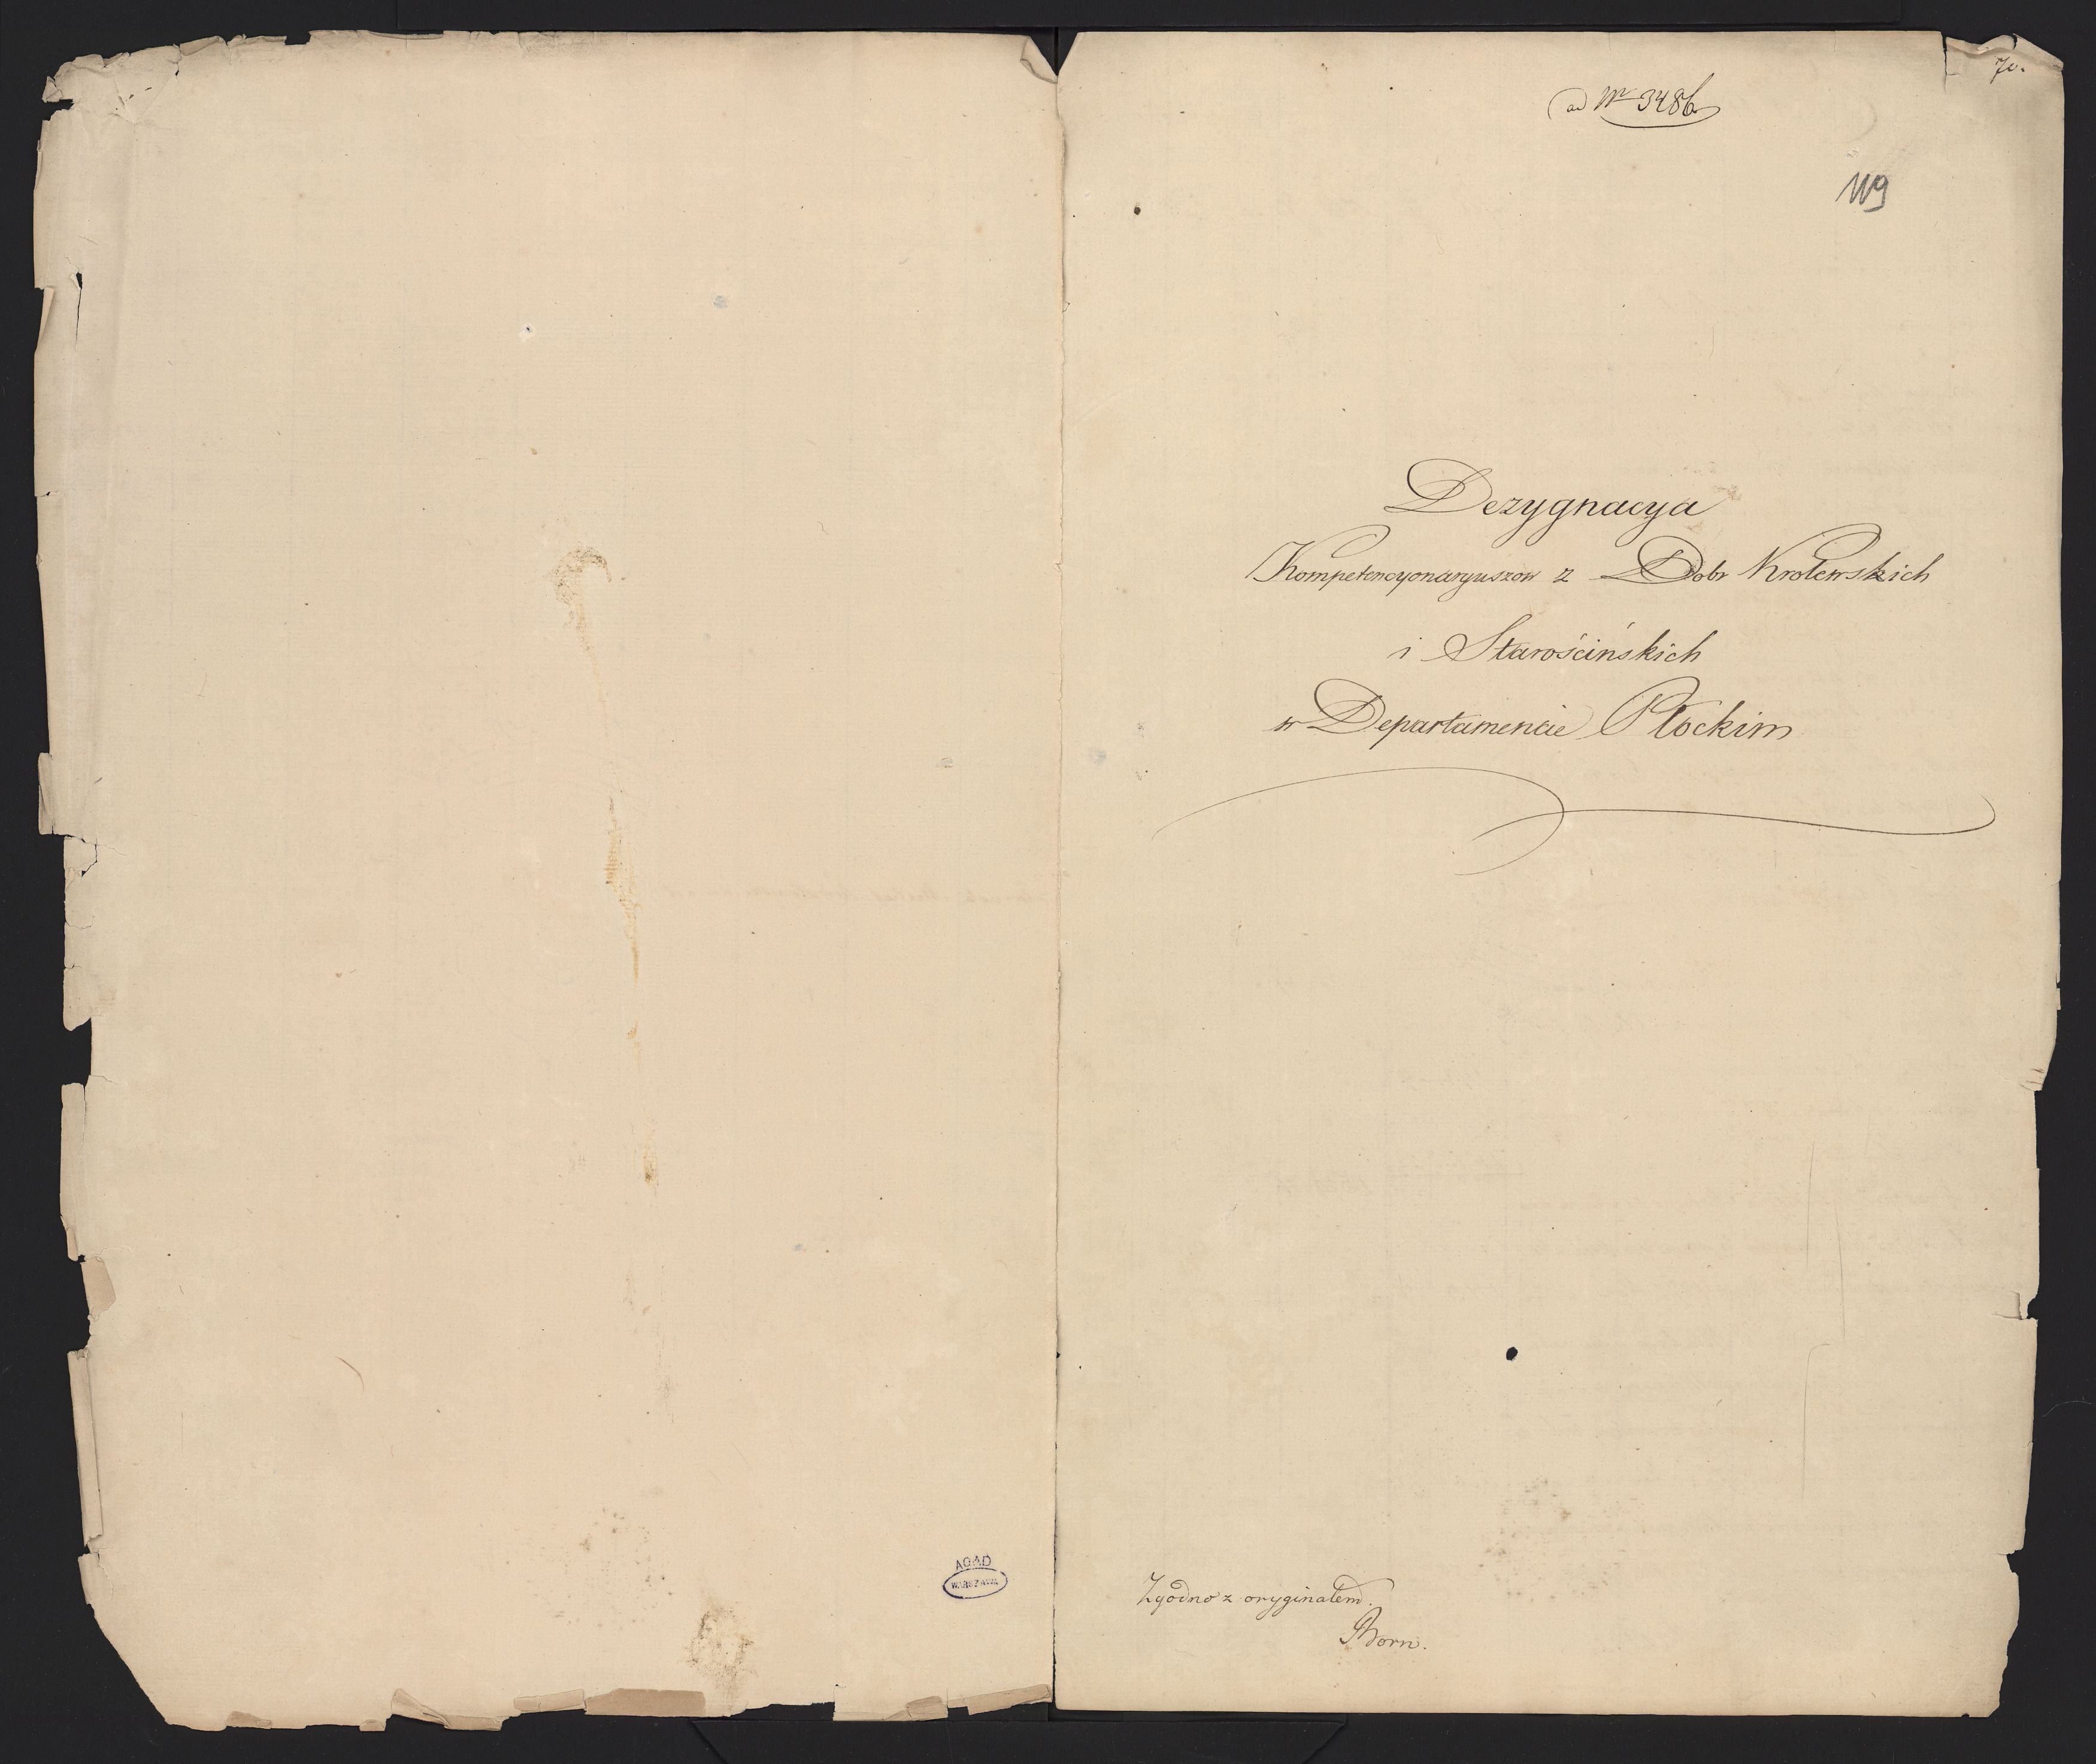 70.
ad Nr 3486
119
Dezygnacya
Kompetencyonaryuszow z Dobr Krolewskich
i Starościńskich
w Departamencie Płockim
AGAD
WARSZAWA
Zgodno z oryginałem.